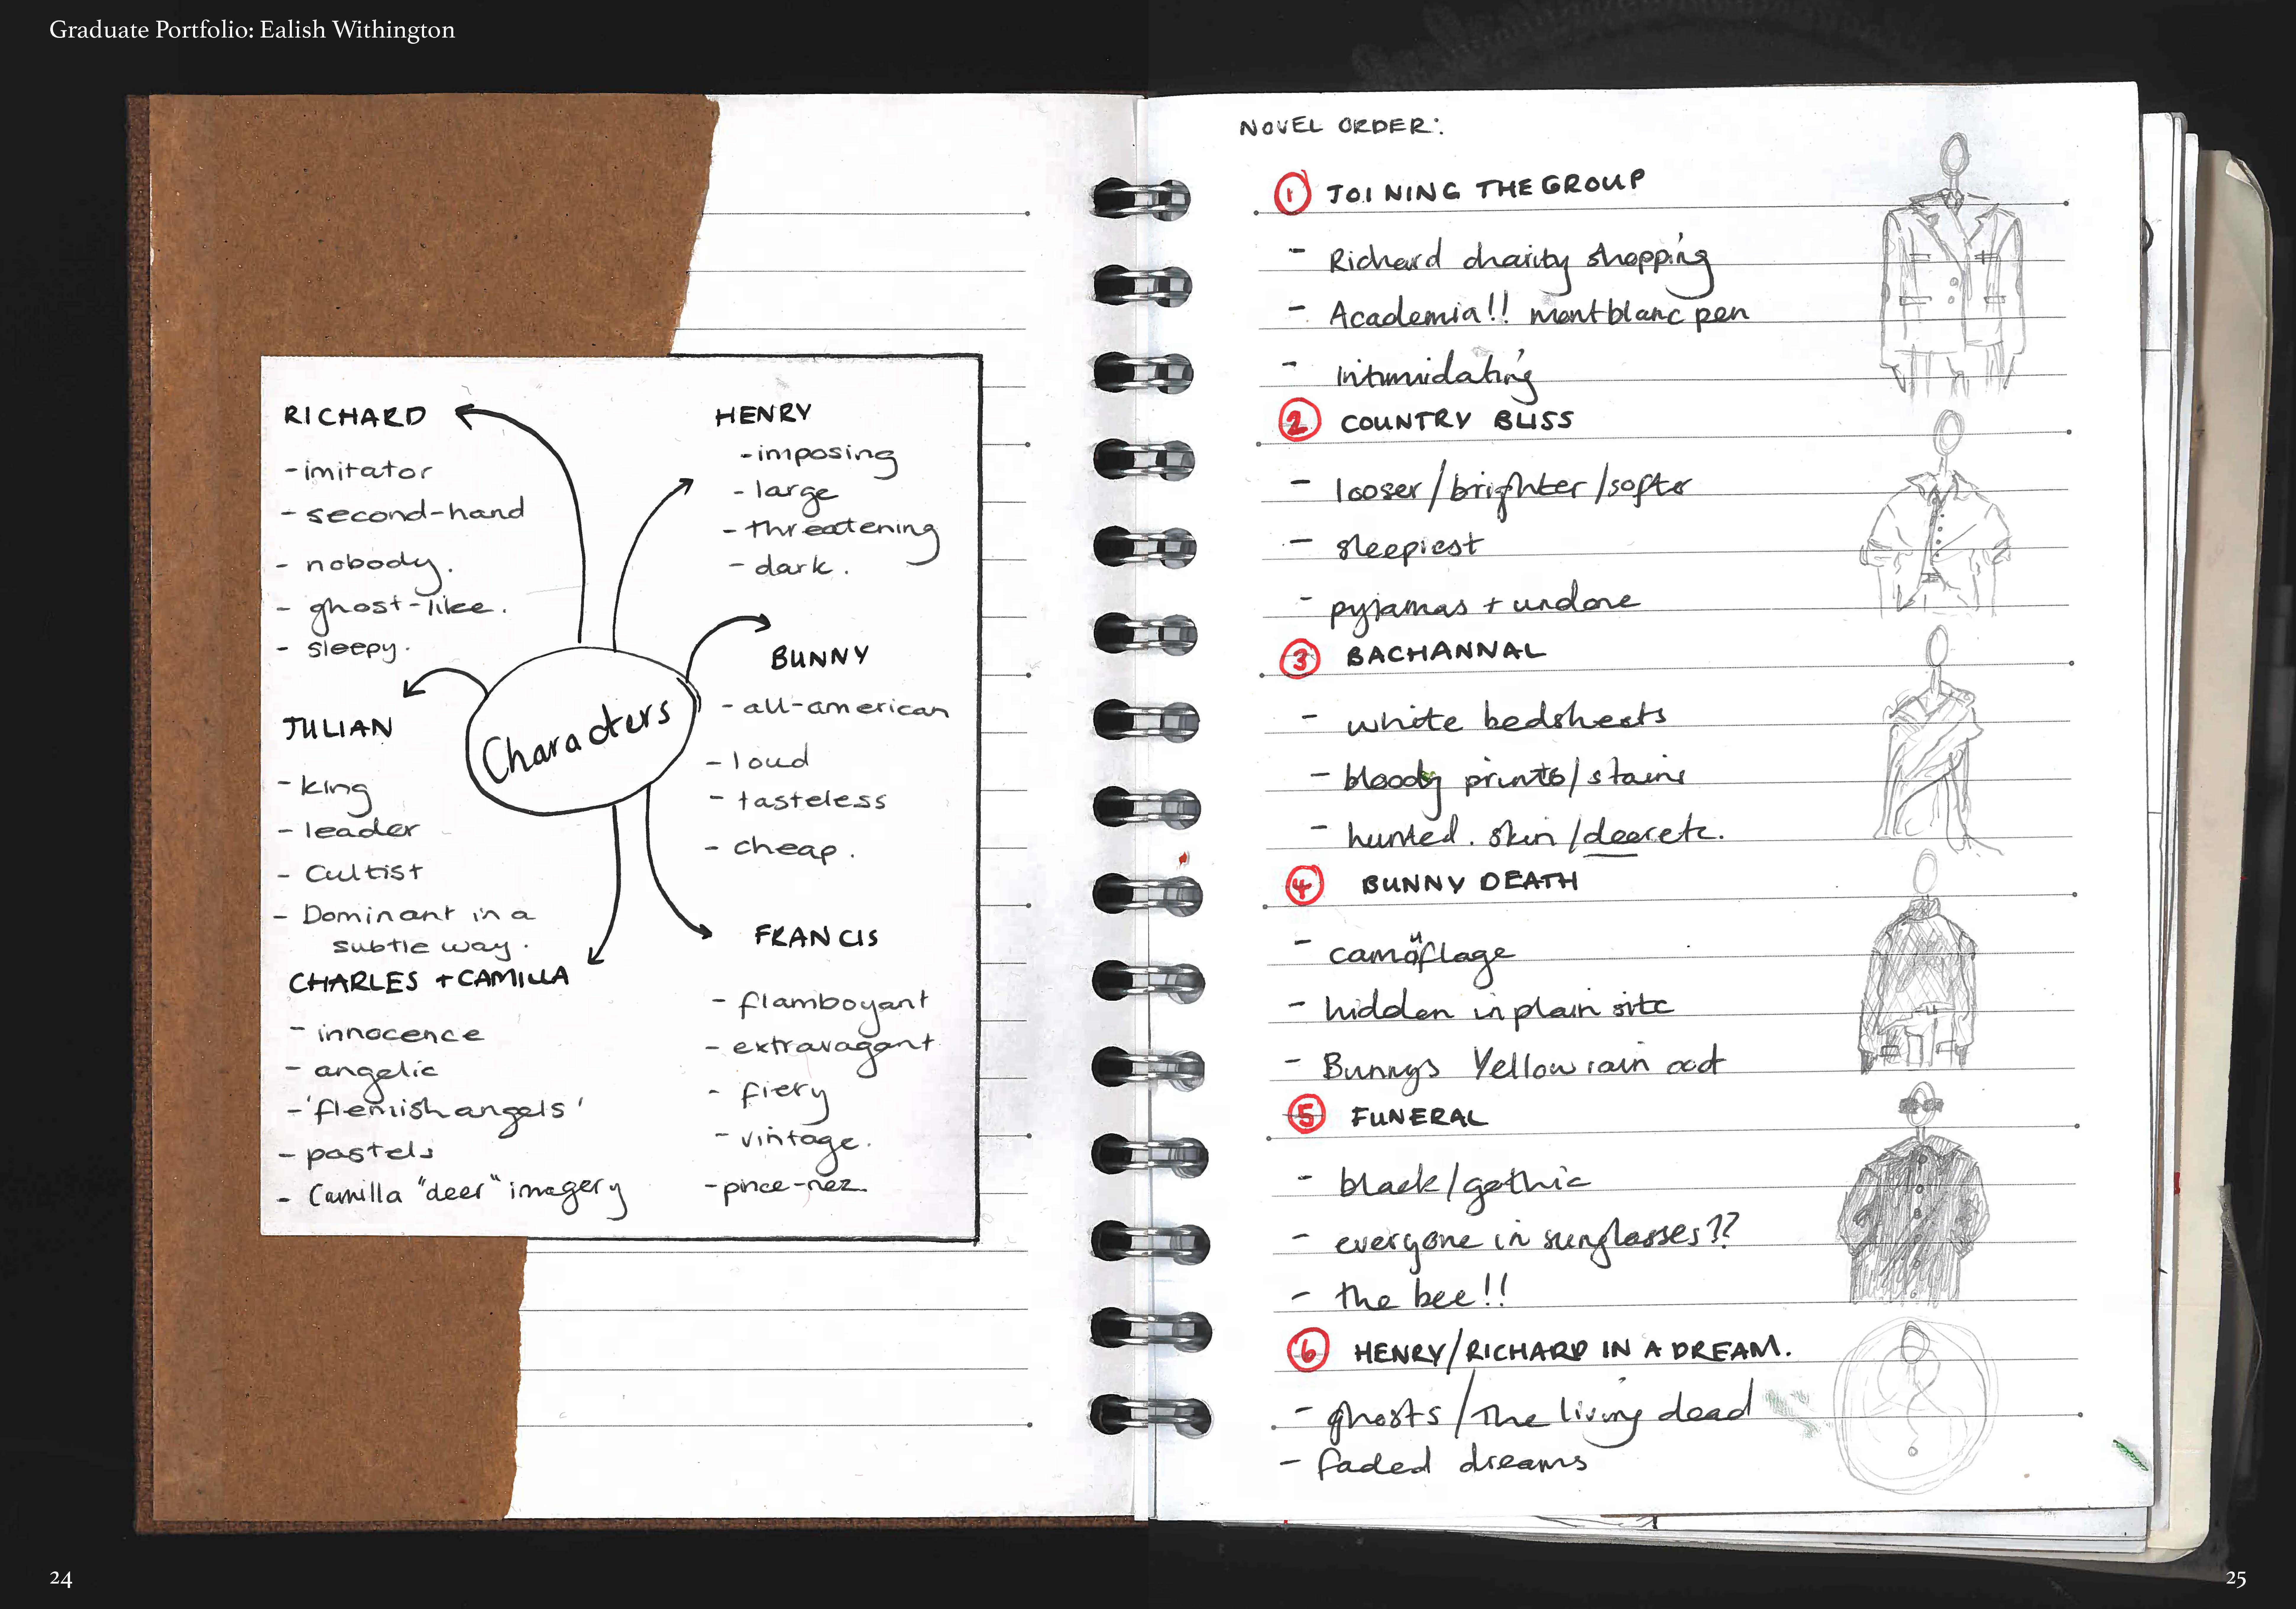 Graduate Portfolio: Ealish Withington
RICHARD
- imitator
- second-hand
- nobody.
- ghost-like.
- sleepy.
HENRY
- imposing
- large
- threatening
- dark.
BUNNY
- all-american
- loud
- tasteless
- cheap.
Characters
JULIAN
- king
- leader
- Cultist
- Dominant in a
subtle way.
CHARLES + CAMILLA
- innocence
- angelic
- 'flemish angels'
- pastels
- Camilla "deer" imagery
FRANCIS
- flamboyant
- extravagant
- fiery
- vintage.
- pince-nez.
NOVEL ORDER:
1 JOINING THE GROUP
- Richard charity shopping
- Academia!! montblanc pen
- intimidating
2 COUNTRY BLISS
- looser/brighter/softer
- sleepiest
- pyjamas + undone
3 BACHANNAL
- white bedsheets
- bloody prints/stains
- hunted. skin/deer etc.
4 BUNNY DEATH
- camouflage
- hidden in plain site
- Bunnys Yellow rain coat
5 FUNERAL
- black/gothic
- everyone in sunglasses??
- the bee!!
6 HENRY/RICHARD IN A DREAM.
- ghosts/The living dead
- faded dreams
24
25